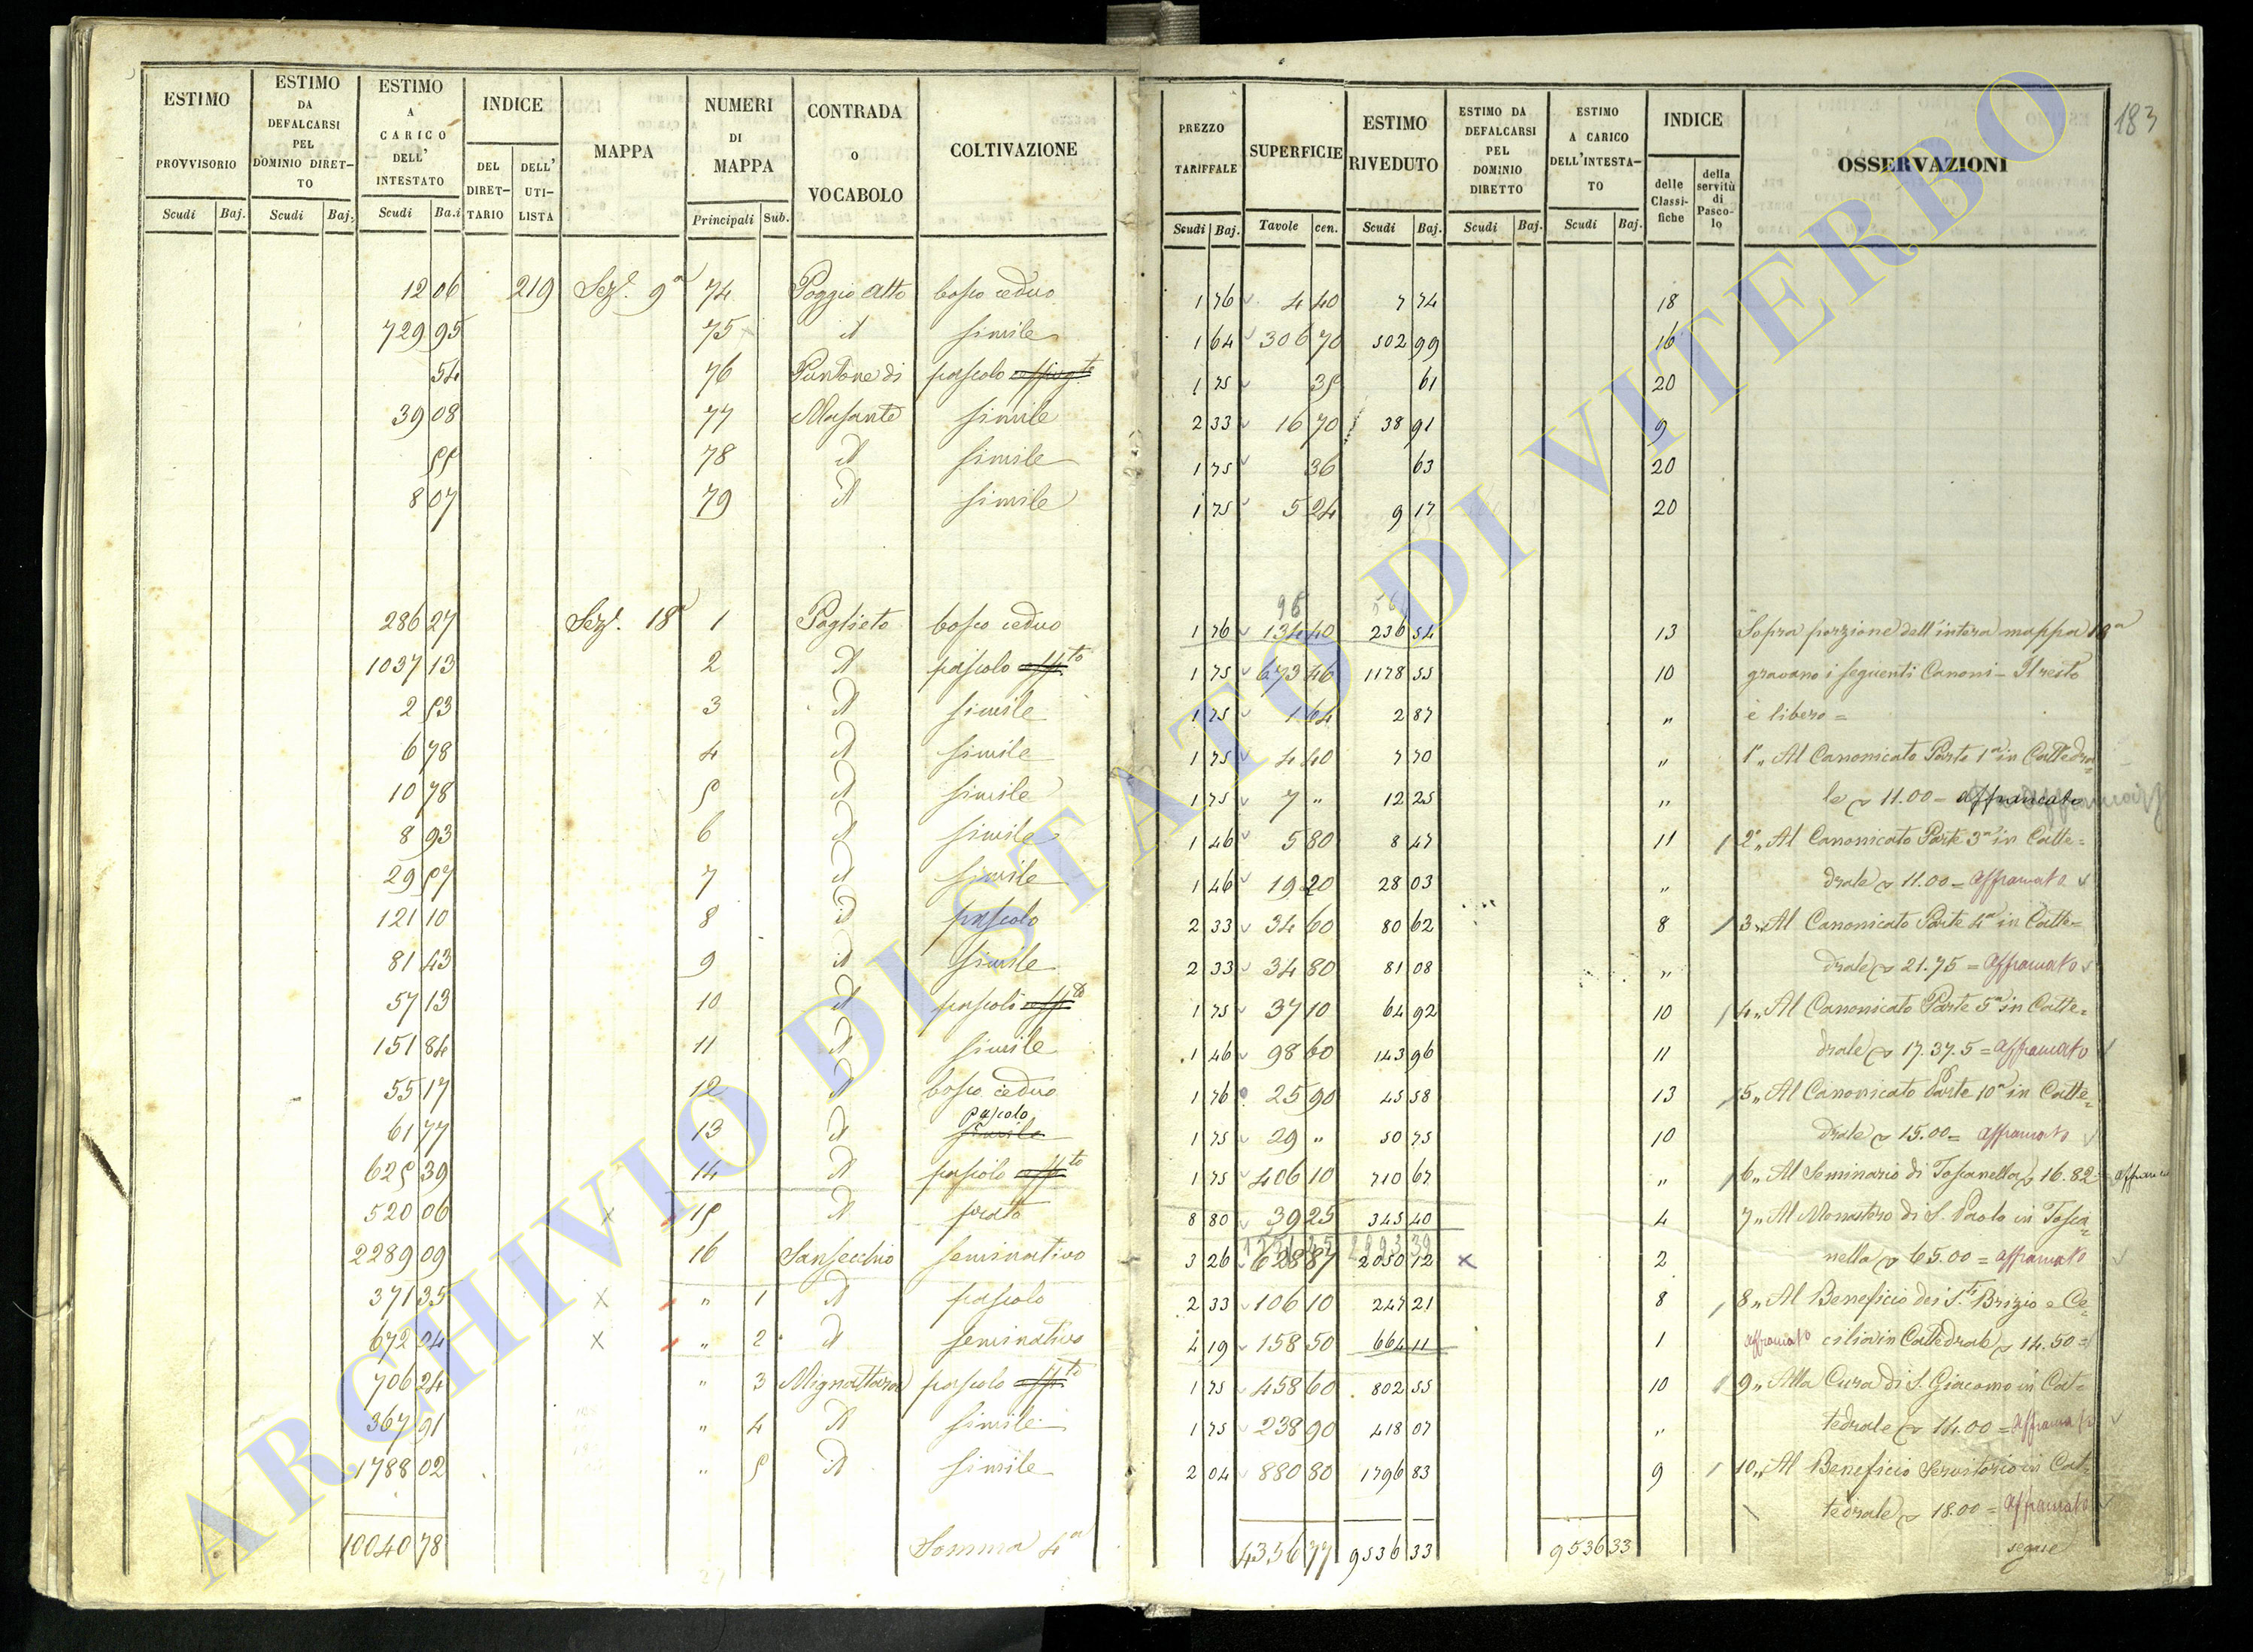 183
ESTIMO PROVVISORIO Scudi Baj.
ESTIMO DA DEFALCARSI PEL DOMINIO DIRETTO Scudi Baj.
ESTIMO A CARICO DELL' INTESTATO Scudi Ba.i
INDICE DEL DIRETTARIO DELL' UTILISTA
MAPPA
NUMERI DI MAPPA Principali Sub.
CONTRADA O VOCABOLO
COLTIVAZIONE
PREZZO TARIFFALE Scudi Baj.
SUPERFICIE Tavole cen.
ESTIMO RIVEDUTO Scudi Baj.
ESTIMO DA DEFALCARSI PEL DOMINIO DIRETTO Scudi Baj.
ESTIMO A CARICO DELL'INTESTATO Scudi Baj.
INDICE delle Classifiche della servitù di Pascolo
OSSERVAZIONI
12 06 219 Sez. 9a 74 Poggio Alto bosco ceduo 1 76 4 40 7 74 18
729 95 75 id simile 1 64 306 70 502 99 16
54 76 Puntone di pascolo 1 75 35 61 20
39 08 77 Mosante simile 2 33 16 70 38 91 9
55 78 id simile 1 75 36 63 20
8 07 79 id simile 1 75 5 24 9 17 20
286 27 Sez. 18a 1 Paglieto bosco ceduo 1 76 134 40 236 54 13 Sopra porzione dell'intera mappa 18a
1037 13 2 id pascolo 1 75 673 46 1178 55 10 gravano i seguenti Canoni - Il resto
2 53 3 id simile 1 75 1 64 2 87 " è libero =
6 78 4 id simile 1 75 4 40 7 70 " 1° " Al Canonicato Parte 1a in Cattedra=
10 78 5 id simile 1 75 7 " 12 25 " le 11.00 = affrancato
8 93 6 id simile 1 46 5 80 8 47 11 2° " Al Canonicato Parte 3a in Catte=
29 57 7 id simile 1 46 19 20 28 03 " drale 11.00 = affrancato
121 10 8 id pascolo 2 33 34 60 80 62 8 3 " Al Canonicato Parte 4a in Catte=
81 43 9 id simile 2 33 34 80 81 08 " drale 21.75 = affrancato
57 13 10 id pascolo 1 75 37 10 64 92 10 4 " Al Canonicato Parte 5a in Catte=
151 84 11 id simile 1 46 98 60 143 96 11 drale 17.37.5 = affrancato
55 17 12 id bosco ceduo 1 76 25 90 45 58 13 5 " Al Canonicato Parte 10a in Catte=
61 77 13 id pascolo simile 1 75 29 " 50 75 10 drale 15.00 = affrancato
625 39 14 id pascolo 1 75 406 10 710 67 " 6 " Al Seminario di Toscanella 16.82 =
520 06 15 id prato 8 80 39 25 345 40 4 7 " Al Monastero di S. Paolo in Tosca=
2289 09 16 Sansecchio seminativo 3 26 628 87 2050 12 2 nella 65.00 = affrancato
371 35 " 1 id pascolo 2 33 106 10 247 21 8 8 " Al Beneficio dei S.ti Brizio e Ce=
672 04 " 2 id seminativo 4 19 158 50 664 11 1 affrancato cilia in Cattedrale 14.50 =
706 24 " 3 Mignattara pascolo 1 75 458 60 802 55 10 9 " Alla Cura di S. Giacomo in Cat=
367 91 " 4 id simile 1 75 238 90 418 07 " tedrale 14.00 = affrancato
1788 02 " 5 id simile 2 04 880 80 1796 83 9 10 " Al Beneficio Servitorio in Cat=
tedrale 18.00 = affrancato
10040 78 Somma 4a 4356 77 9536 33 9536 33 segue
ARCHIVIO DI STATO DI VITERBO